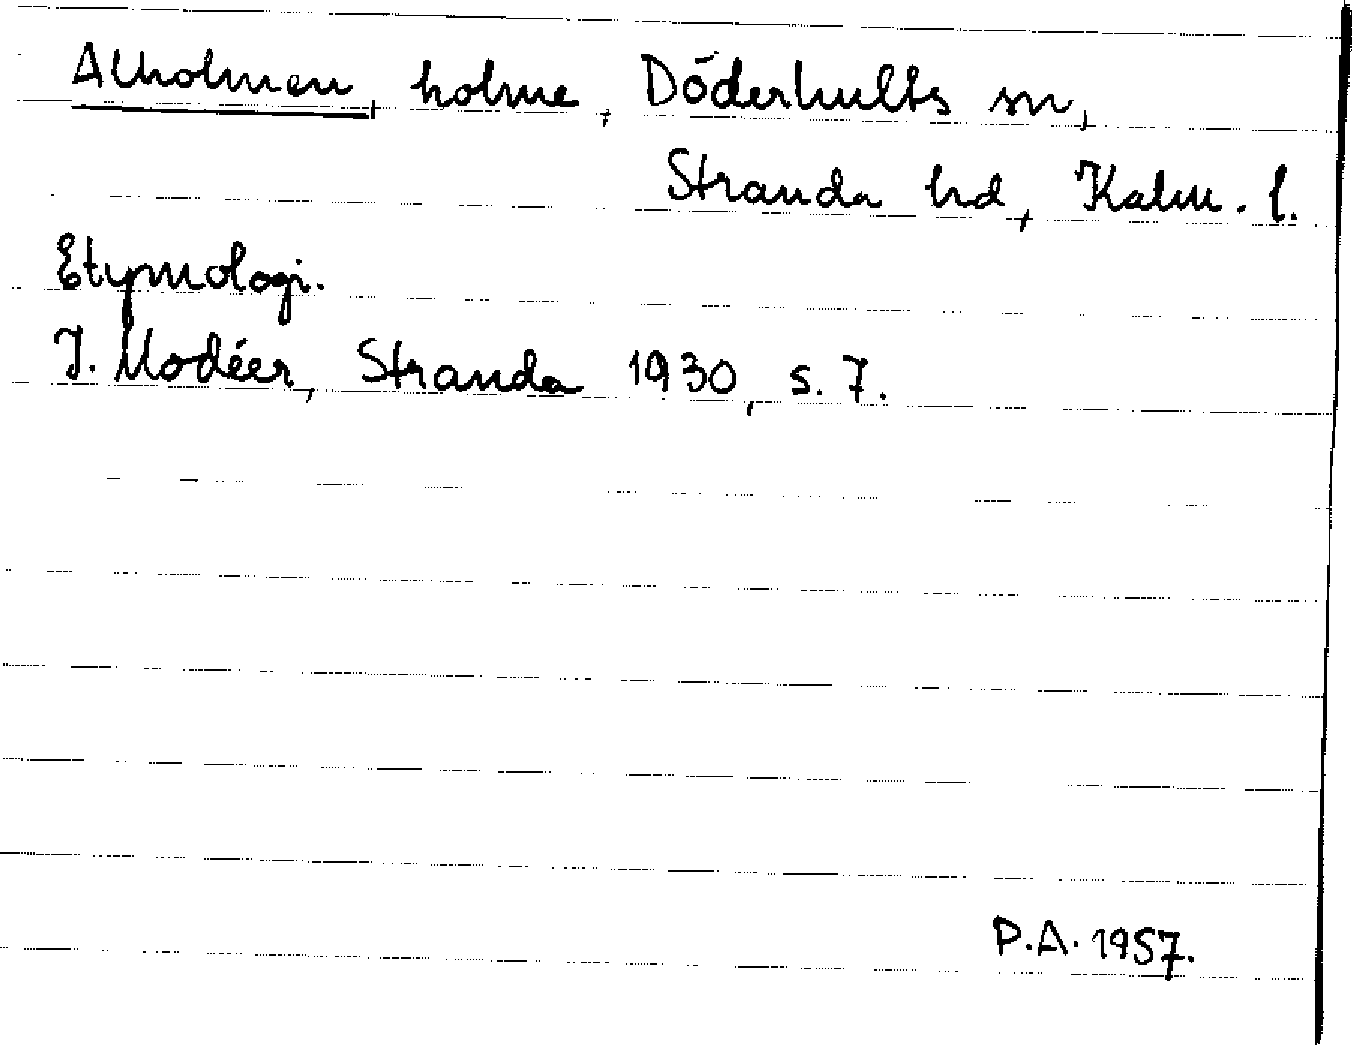 Alholmen, holme, Döderhults sn,
Stranda hd, Kalm. l.
Etymologi.
I. Modéer, Stranda 1930, s. 7.
P.A. 1957.